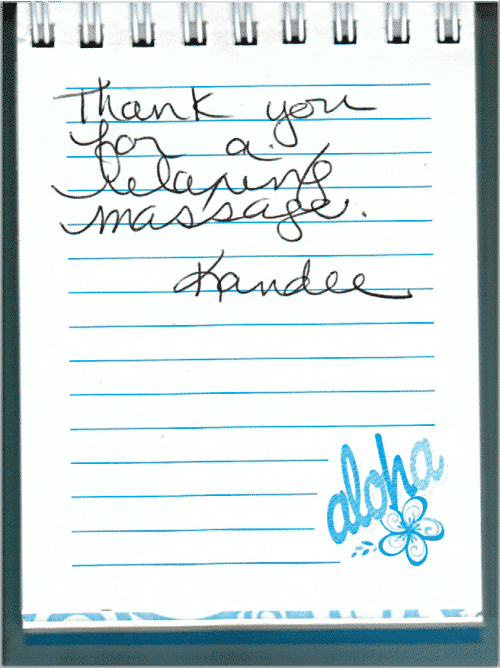 Thank you
for a
relaxing
massage.
Kandee
aloha